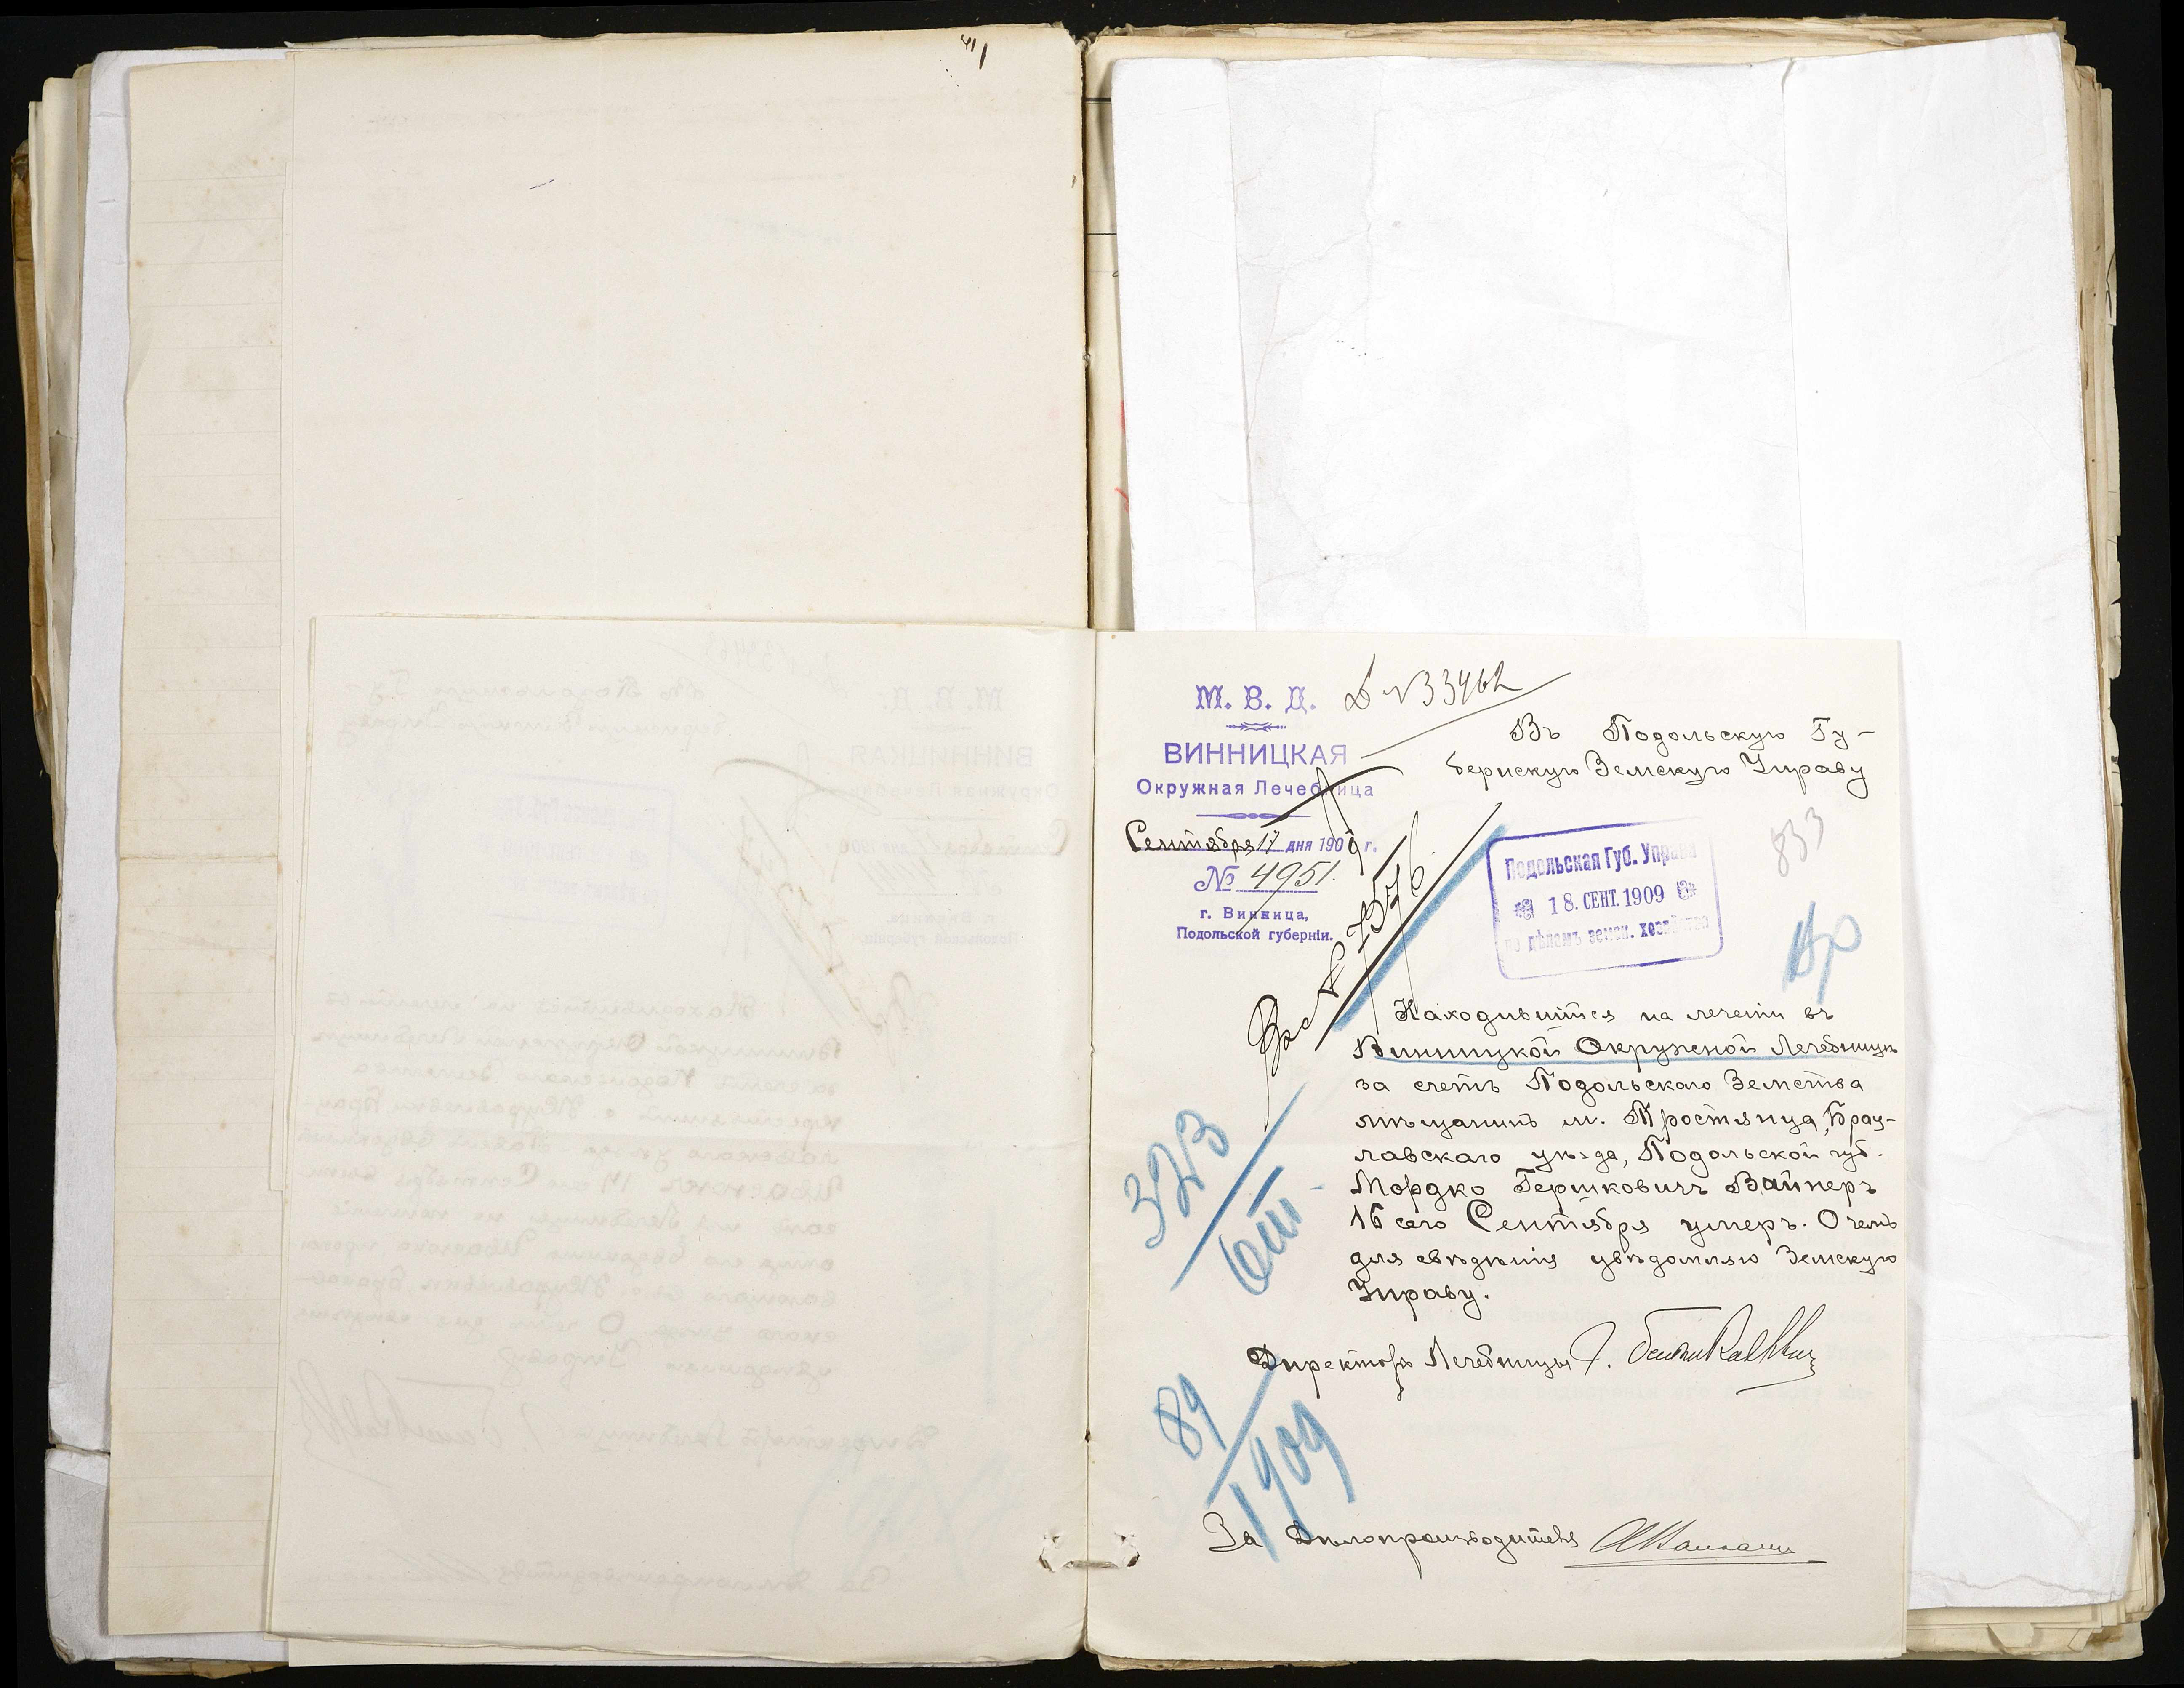 М. В. Д.
Д №33462
ВИННИЦКАЯ
Окружная Лечебница
Сентября 17 дня 1909 г.
№ 4951.
г. Винница,
Подольской губерніи.
Въ Подольскую Гу-
бернскую Земскую Управу
833
Подольская Губ. Управа
18. СЕНТ. 1909
по дѣламъ земск. хозяйства
Находившійся на леченіи въ
Винницкой Окружной Лечебницѣ
за счетъ Подольскаго Земства
мѣщанинъ м. Тростянца, Брац-
лавскаго уѣзда, Подольской губ.
Мордко Гершковичъ Вайнеръ
16 сего Сентября умеръ. О чемъ
для свѣдѣнія увѣдомляю Земскую
Управу.
323
Директоръ Лечебницы
89
1909
За Дѣлопроизводителя